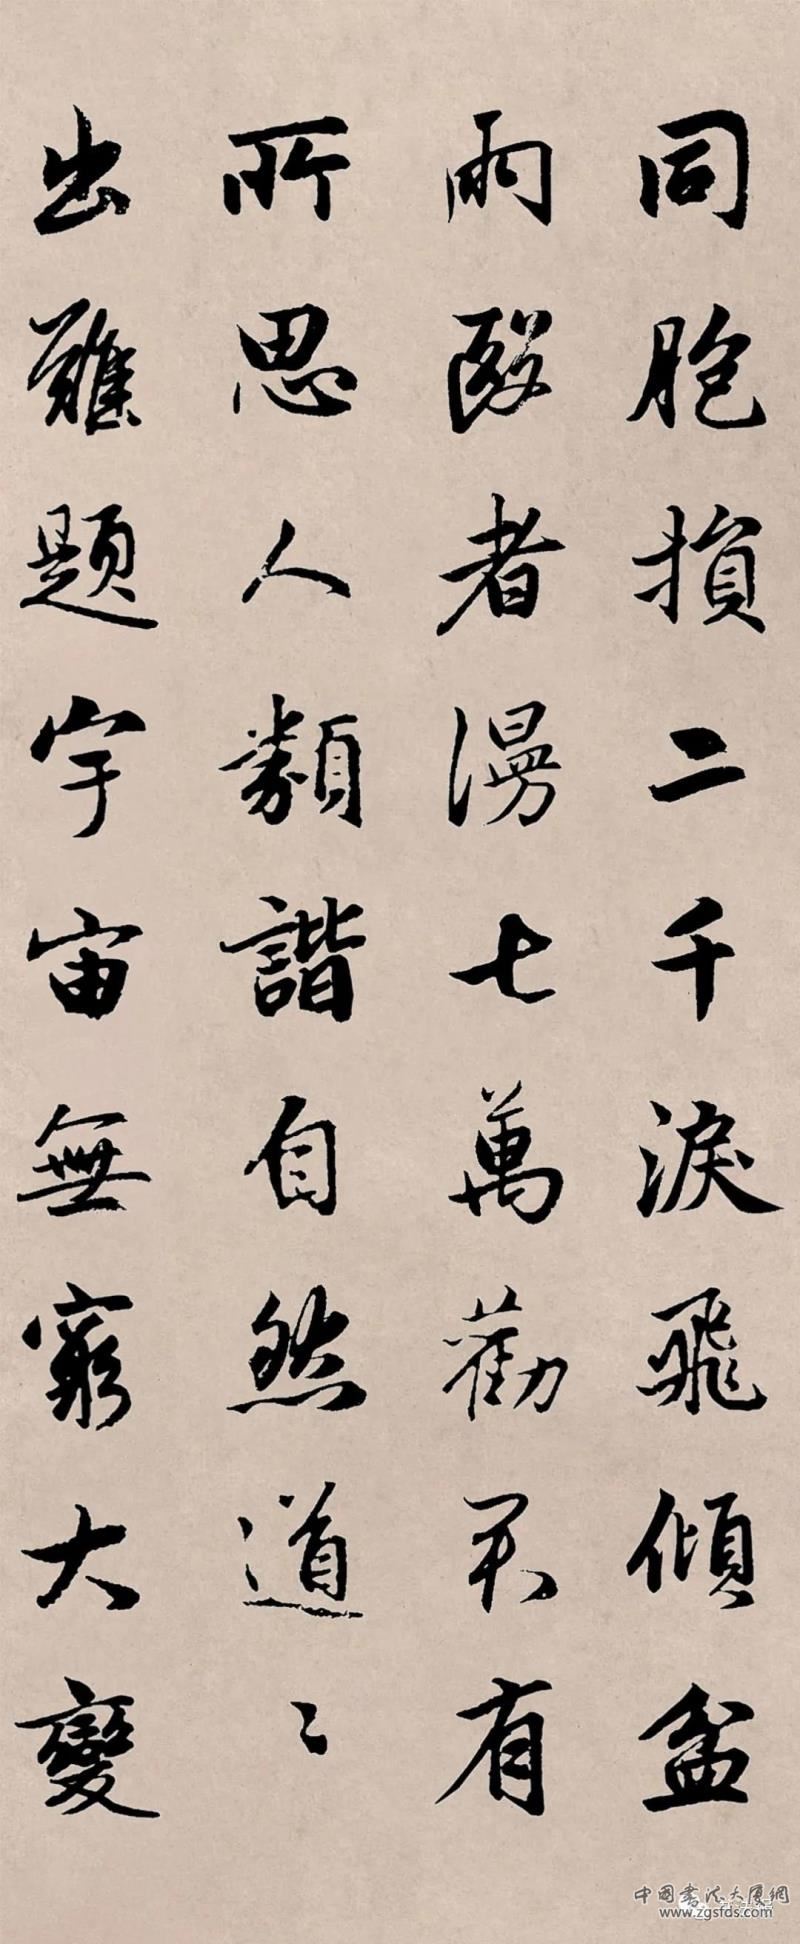 同胞損二千淚飛傾盆
雨毆者漫七萬勸君有
所思人類諧自然道〻
出難題宇宙無窮大變
中国書法大厦網
www.zgsfds.com